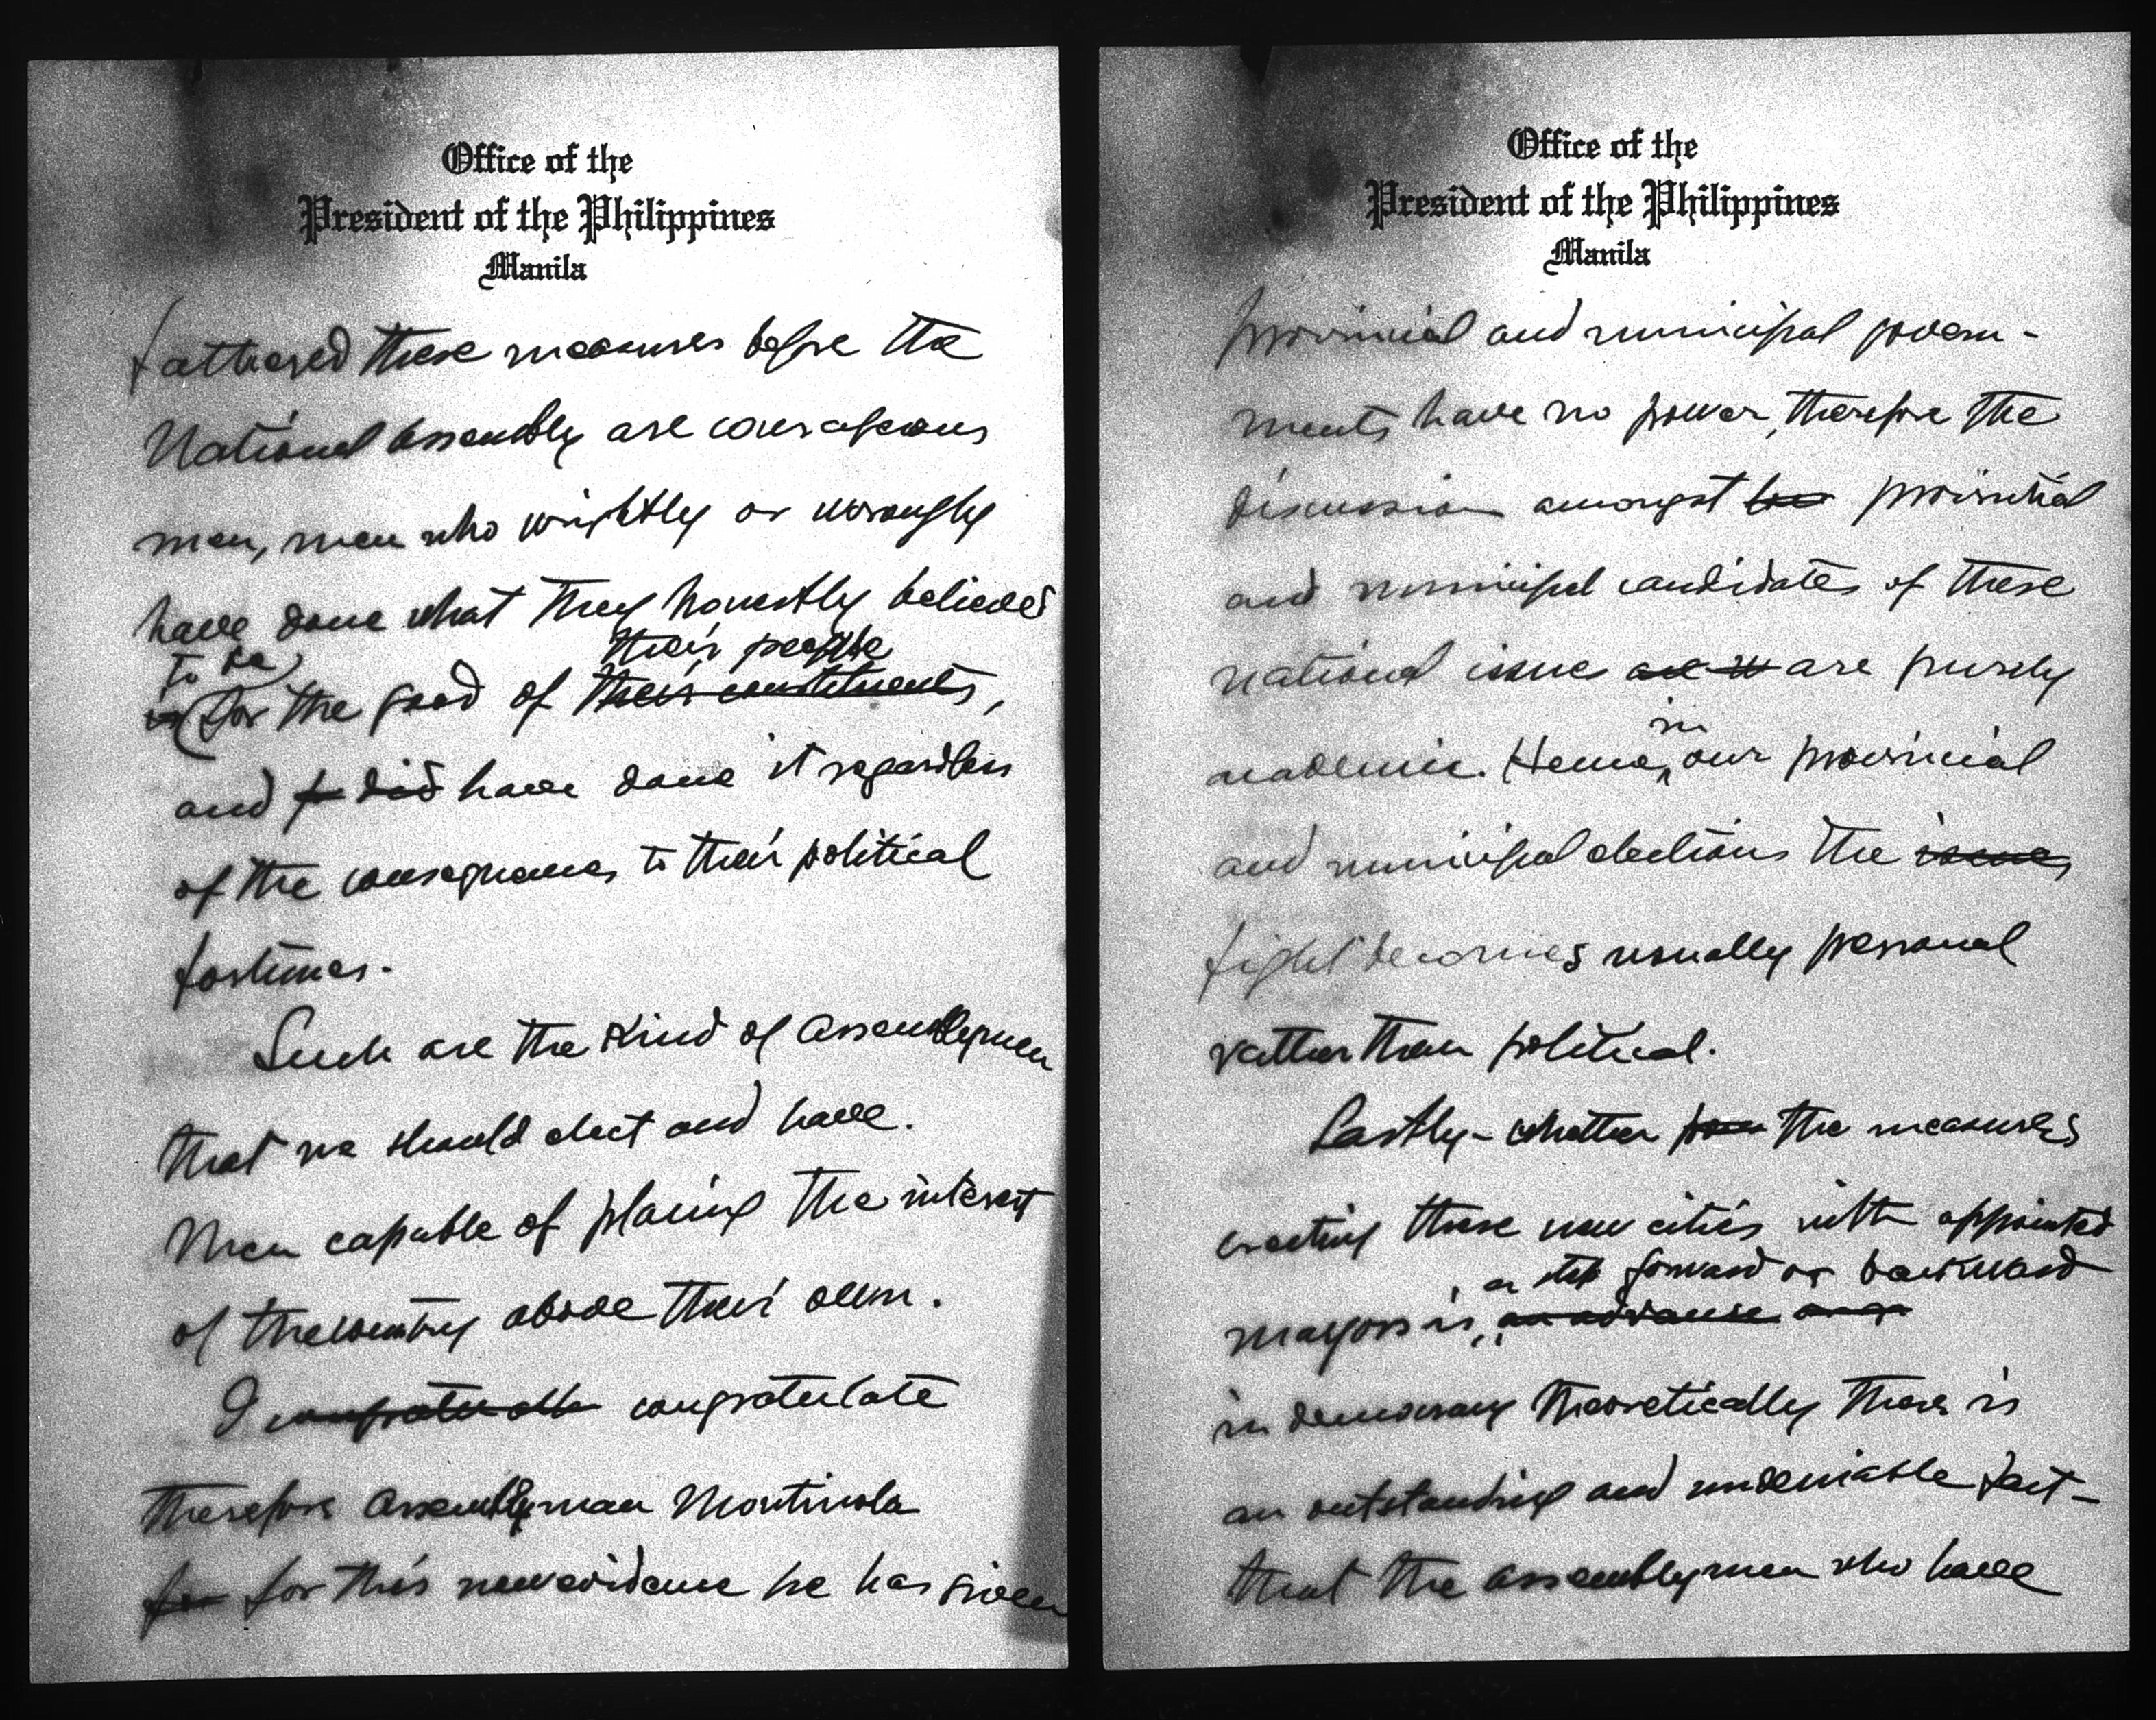 Office of the
President of the Philippines
Manila
fathered these measures before the
National Assembly are courageous
men, men who wrightly or wrongly
have done what they honestly believed
to be their people
for the good of their constituents,
and did have done it regardless
of the consequences to their political
fortunes.
Such are the kind of Assemblymen
that we should elect and have.
Men capable of placing the interest
of the country above their own.
I congratulate congratulate
therefore Assemblyman Montinola
for for this new evidence he has given
Office of the
President of the Philippines
Manila
provincial and municipal govern-
ments have no power, therefore the
discussion amongst provincial
and municipal candidates of these
national issue are purely
in
academic. Hence, our provincial
and municipal elections the issues
fight becomes usually personal
rather than political.
Lastly - whether the measures
creating these new cities with appointed
a step forward or backward
mayors is, an advance
in democracy theoretically there is
an outstanding and undeniable fact -
that the assemblymen who have